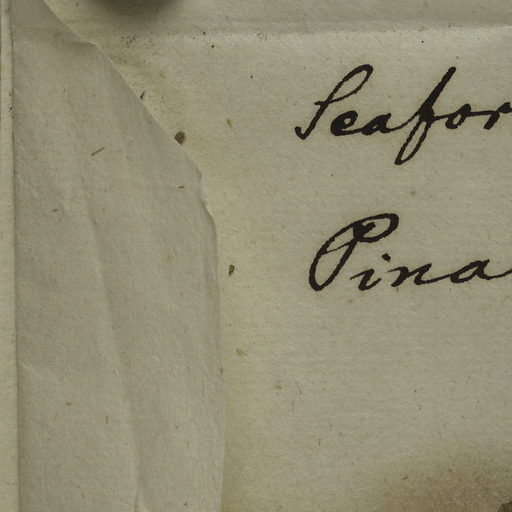 Seafor
Pina